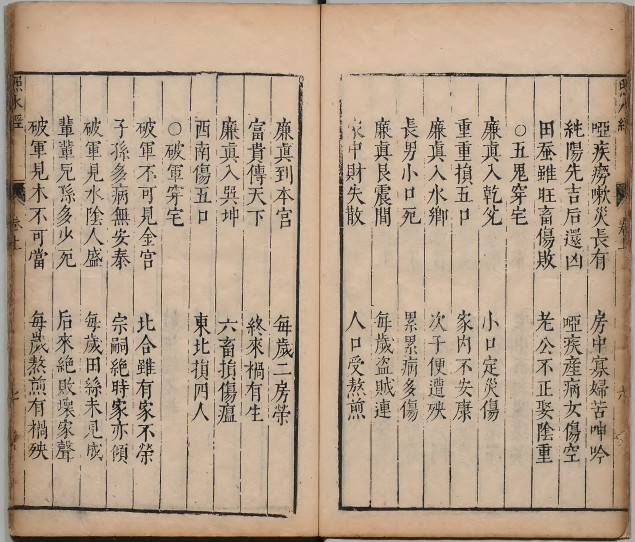 啞疾癆嗽災長有 房中寡婦苦呻吟
純陽先吉后還凶 啞疾產病女傷空
田蚕雖旺畜傷敗 老公不正娶陰重
○五鬼穿宅
廉真入乾兊 小口定災傷
重重損五口 家内不安康
廉真入水鄉 次子便遭殃
長男小口死 累累病多傷
廉真艮震間 每歲盜賊連
家中財失散 人口受熬煎
廉真到本宫 每歲二房榮
富貴傳天下 終來禍有生
廉真入巽坤 六畜損傷瘟
西南傷五口 東北損四人
○破軍穿宅
破軍不可見金宫 北合雖有家不榮
子孫多病無安泰 宗嗣絶時家亦傾
破軍見水陰人盛 每歲田絲未見成
輩輩兒孫多少死 后來絶敗壞家聲
破軍見木不可當 每歲熬煎有禍殃
照水經
卷上
七